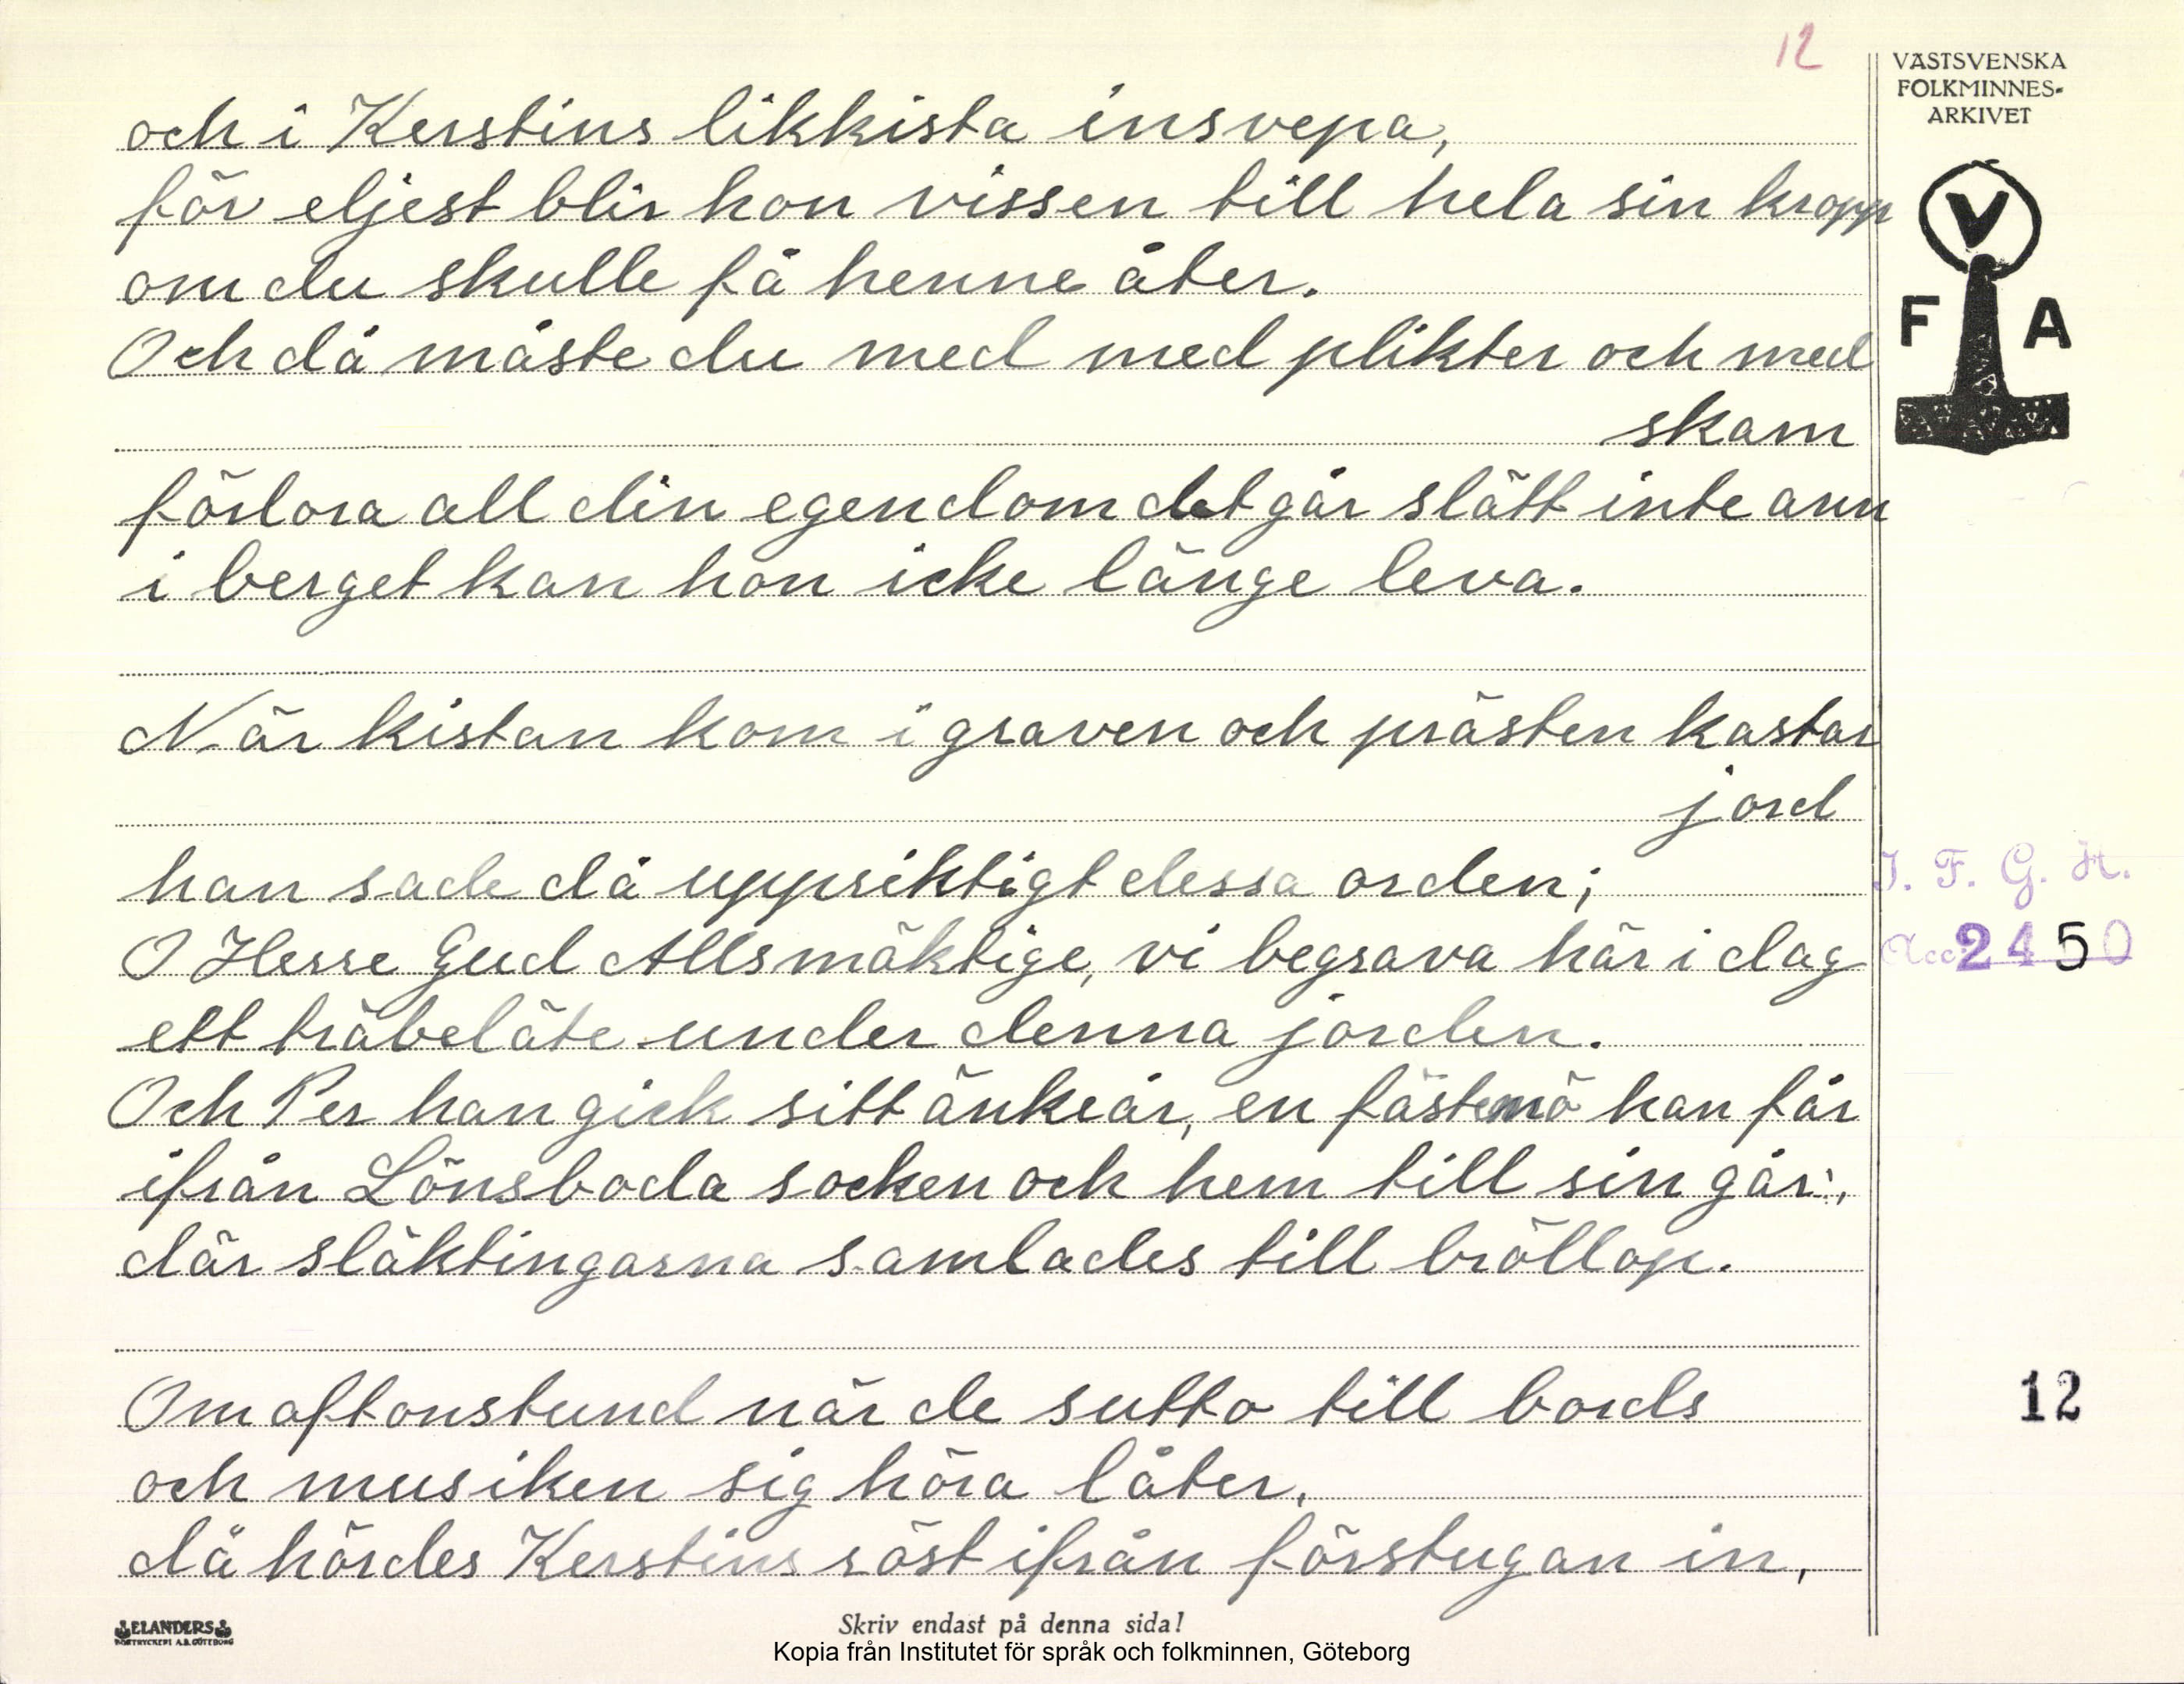 12
VÄSTSVENSKA
FOLKMINNES-
ARKIVET
V
F A
och i Kerstins likkista insvepa,
för eljest blir hon vissen till hela sin kropp
om du skulle få henne åter.
Och då måste du med med plikter och med
skam
förlora all din egendom det går slätt inte ann
i berget kan hon icke länge leva.
När kistan kom i graven och prästen kastar
jord
han sade då uppriktigt dessa orden;
O Herre Gud Allsmäktige, vi begrava här i dag
ett träbeläte under denna jorden.
Och Per han gick sitt änkeår, en fästemö han får
ifrån Lönsboda socken och hem till sin går,
där släktingarna samlades till bröllop.
Om aftonstund när de sutto till bords
och musiken sig höra låter,
då hördes Kerstins röst ifrån förstugan in,
I. F. G. H.
Acc 2450
12
ELANDERS
BOKTRYCKERI A.B. GÖTEBORG
Skriv endast på denna sida!
Kopia från Institutet för språk och folkminnen, Göteborg